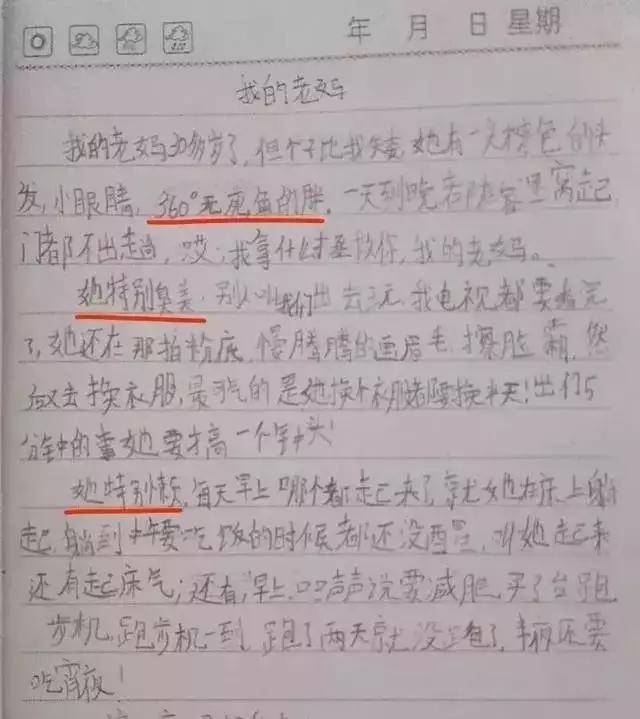 年 月 日 星期
我的老妈
我的老妈30多岁了,但个子比我矮,她有一头棕色的头
发,小眼睛,360°无死角的胖,一天到晚都在家里窝起
门都不出起尚,哎,我拿什么拯救你,我的老妈。
她特别臭美,别人叫我们出去玩,我电视都要看完
了,她还在那拍粉底,慢腾腾的画眉毛,擦脸霜,然
后又去换衣服,最可气的是她换个衣服都要换半天!出门5
分钟的事她要才高一个钟头!
她特别懒,每天早上哪个都起来了,就她在床上躺
起,躺到中午要吃饭的时候都还没醒,叫她起来
还有起床气;还有,早上口口声声说要减肥,买了台跑
步机,跑步机一到,跑了两天就没跑了,半夜还要
吃宵夜!